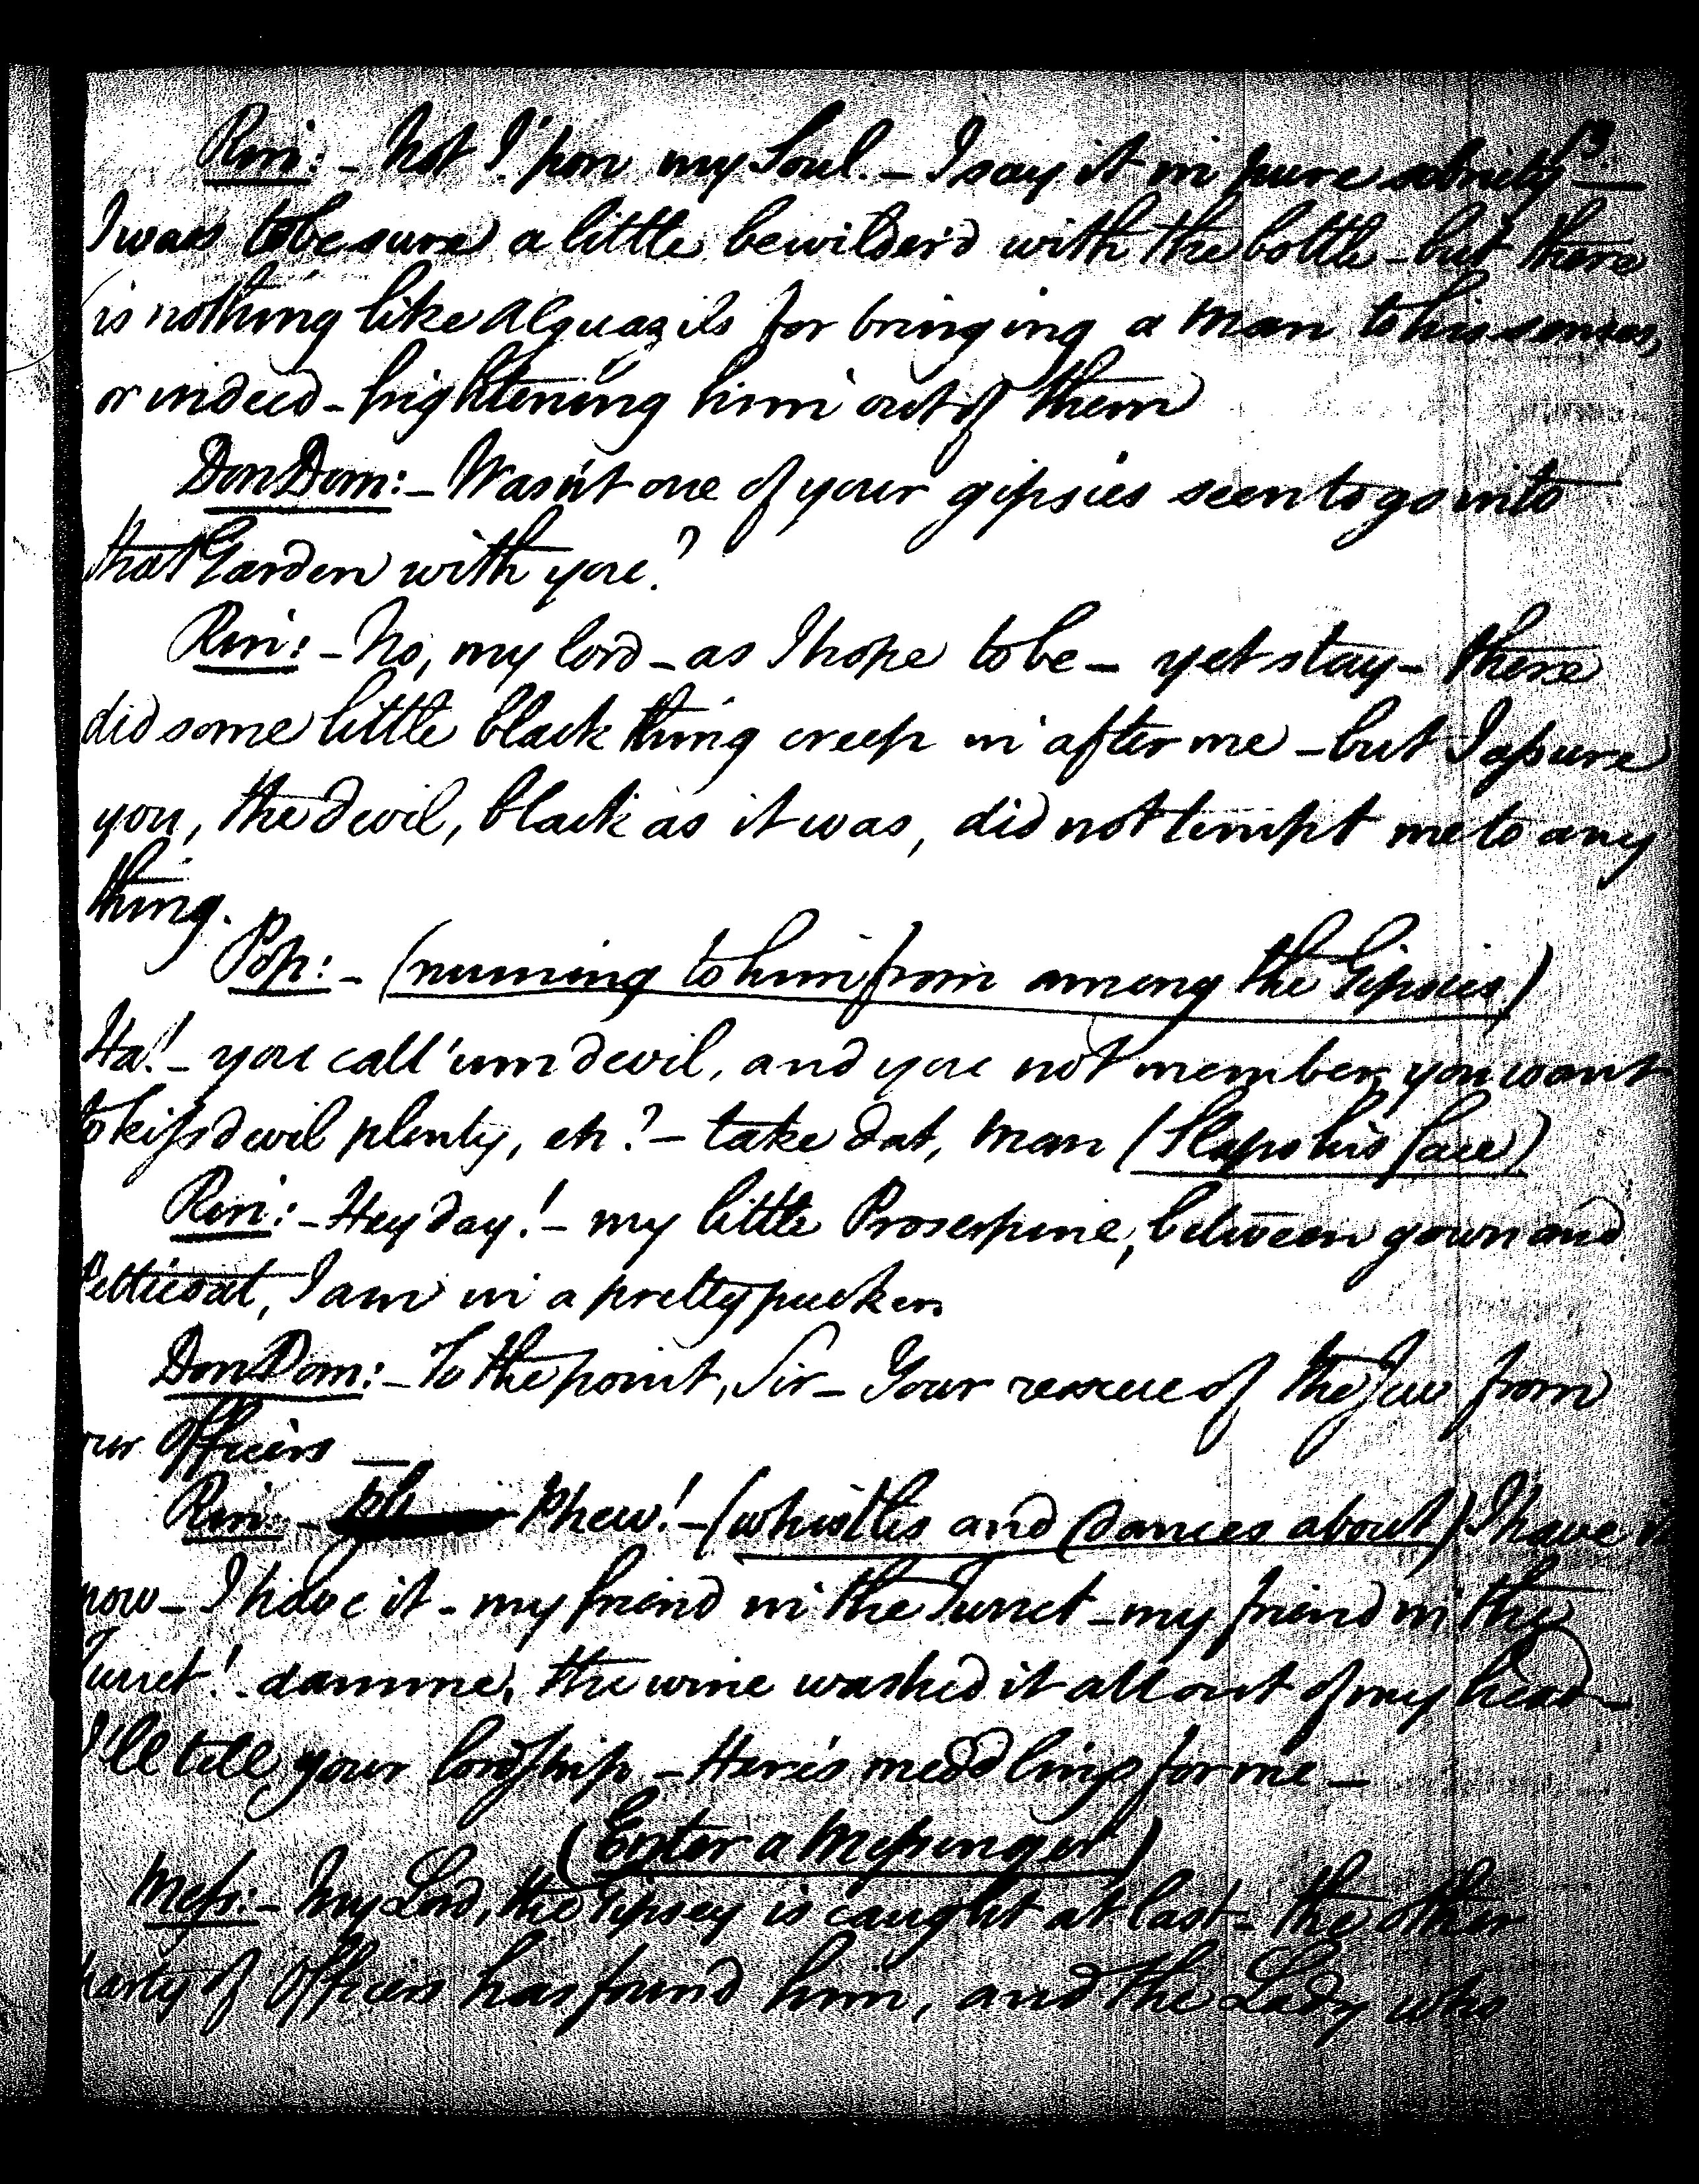 3.
Rin: - Not I 'pon my Soul. - I say it in pure sobriety —
I was to be sure a little bewilder'd with the bottle - but there
is nothing like Alguazils for bringing a man to his senses,
or indeed - frightening him out of them
Don Dom: - Wasn't one of your gipsies seen to go into
that Garden with you?
Rin: - No, my lord - as I hope to be - yet stay - there
did some little black thing creep in after me - but I assure
you, the devil, black as it was, did not tempt me to any
thing.
Pop: - (running to him from among the Gipsies)
Ha! - you call 'um devil, and you not member, you want
to kiss devil plenty, eh? - take dat, man (Slaps his face)
Rin: - Hey day! - my little Proserpine, between gown and
Petticoat, I am in a pretty pucker.
Don Dom: - To the point, Sir - Your rescue of the Jew from
our Officers —
Rin: - Phew! - (whistles and dances about) I have it
now - I have it - my friend in the Turret - my friend in the
Turret! - damme, the wine washed it all out of my head -
I'll tell your lordship - Here's meddling for me —
(Enter a Messenger)
Mess: - My Lord, the Gipsey is caught at last - the other
party of Officers has found him, and the Lady who